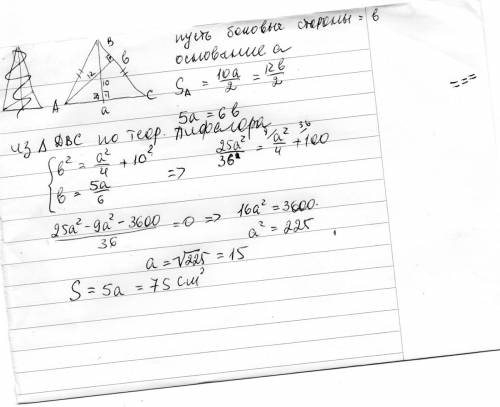 пусть боковые стороны = b
основание a
B
12
b
10
A
a
C
S_Δ = 10a/2 = 12b/2
5a = 6b
из Δ DBC по теор. Пифагора
{ b² = a²/4 + 10²
b = 5a/6 => 25a²/36 = a²/4 + 100
(25a² - 9a² - 3600)/36 = 0 => 16a² = 3600.
a² = 225
a = √225 = 15
S = 5a = 75 см²